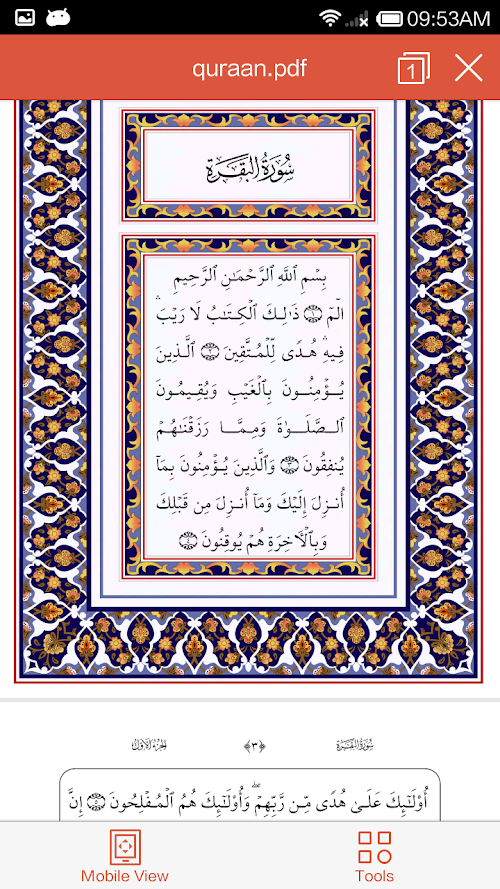 09:53AM
quraan.pdf
1
سُورَةُ البَقَرَةِ
بِسْمِ ٱللَّهِ ٱلرَّحْمَٰنِ ٱلرَّحِيمِ
الٓمٓ ۝١ ذَٰلِكَ ٱلْكِتَٰبُ لَا رَيْبَ ۛ
فِيهِ ۛ هُدًى لِّلْمُتَّقِينَ ۝٢ ٱلَّذِينَ
يُؤْمِنُونَ بِٱلْغَيْبِ وَيُقِيمُونَ
ٱلصَّلَوٰةَ وَمِمَّا رَزَقْنَٰهُمْ
يُنفِقُونَ ۝٣ وَٱلَّذِينَ يُؤْمِنُونَ بِمَآ
أُنزِلَ إِلَيْكَ وَمَآ أُنزِلَ مِن قَبْلِكَ
وَبِٱلْءَاخِرَةِ هُمْ يُوقِنُونَ ۝٤
سُورَةُ البَقَرَةِ ﴿٣﴾ الجُزْءُ الأَوَّلُ
أُو۟لَٰٓئِكَ عَلَىٰ هُدًى مِّن رَّبِّهِمْ ۖ وَأُو۟لَٰٓئِكَ هُمُ ٱلْمُفْلِحُونَ ۝٥ إِنَّ
Mobile View
Tools